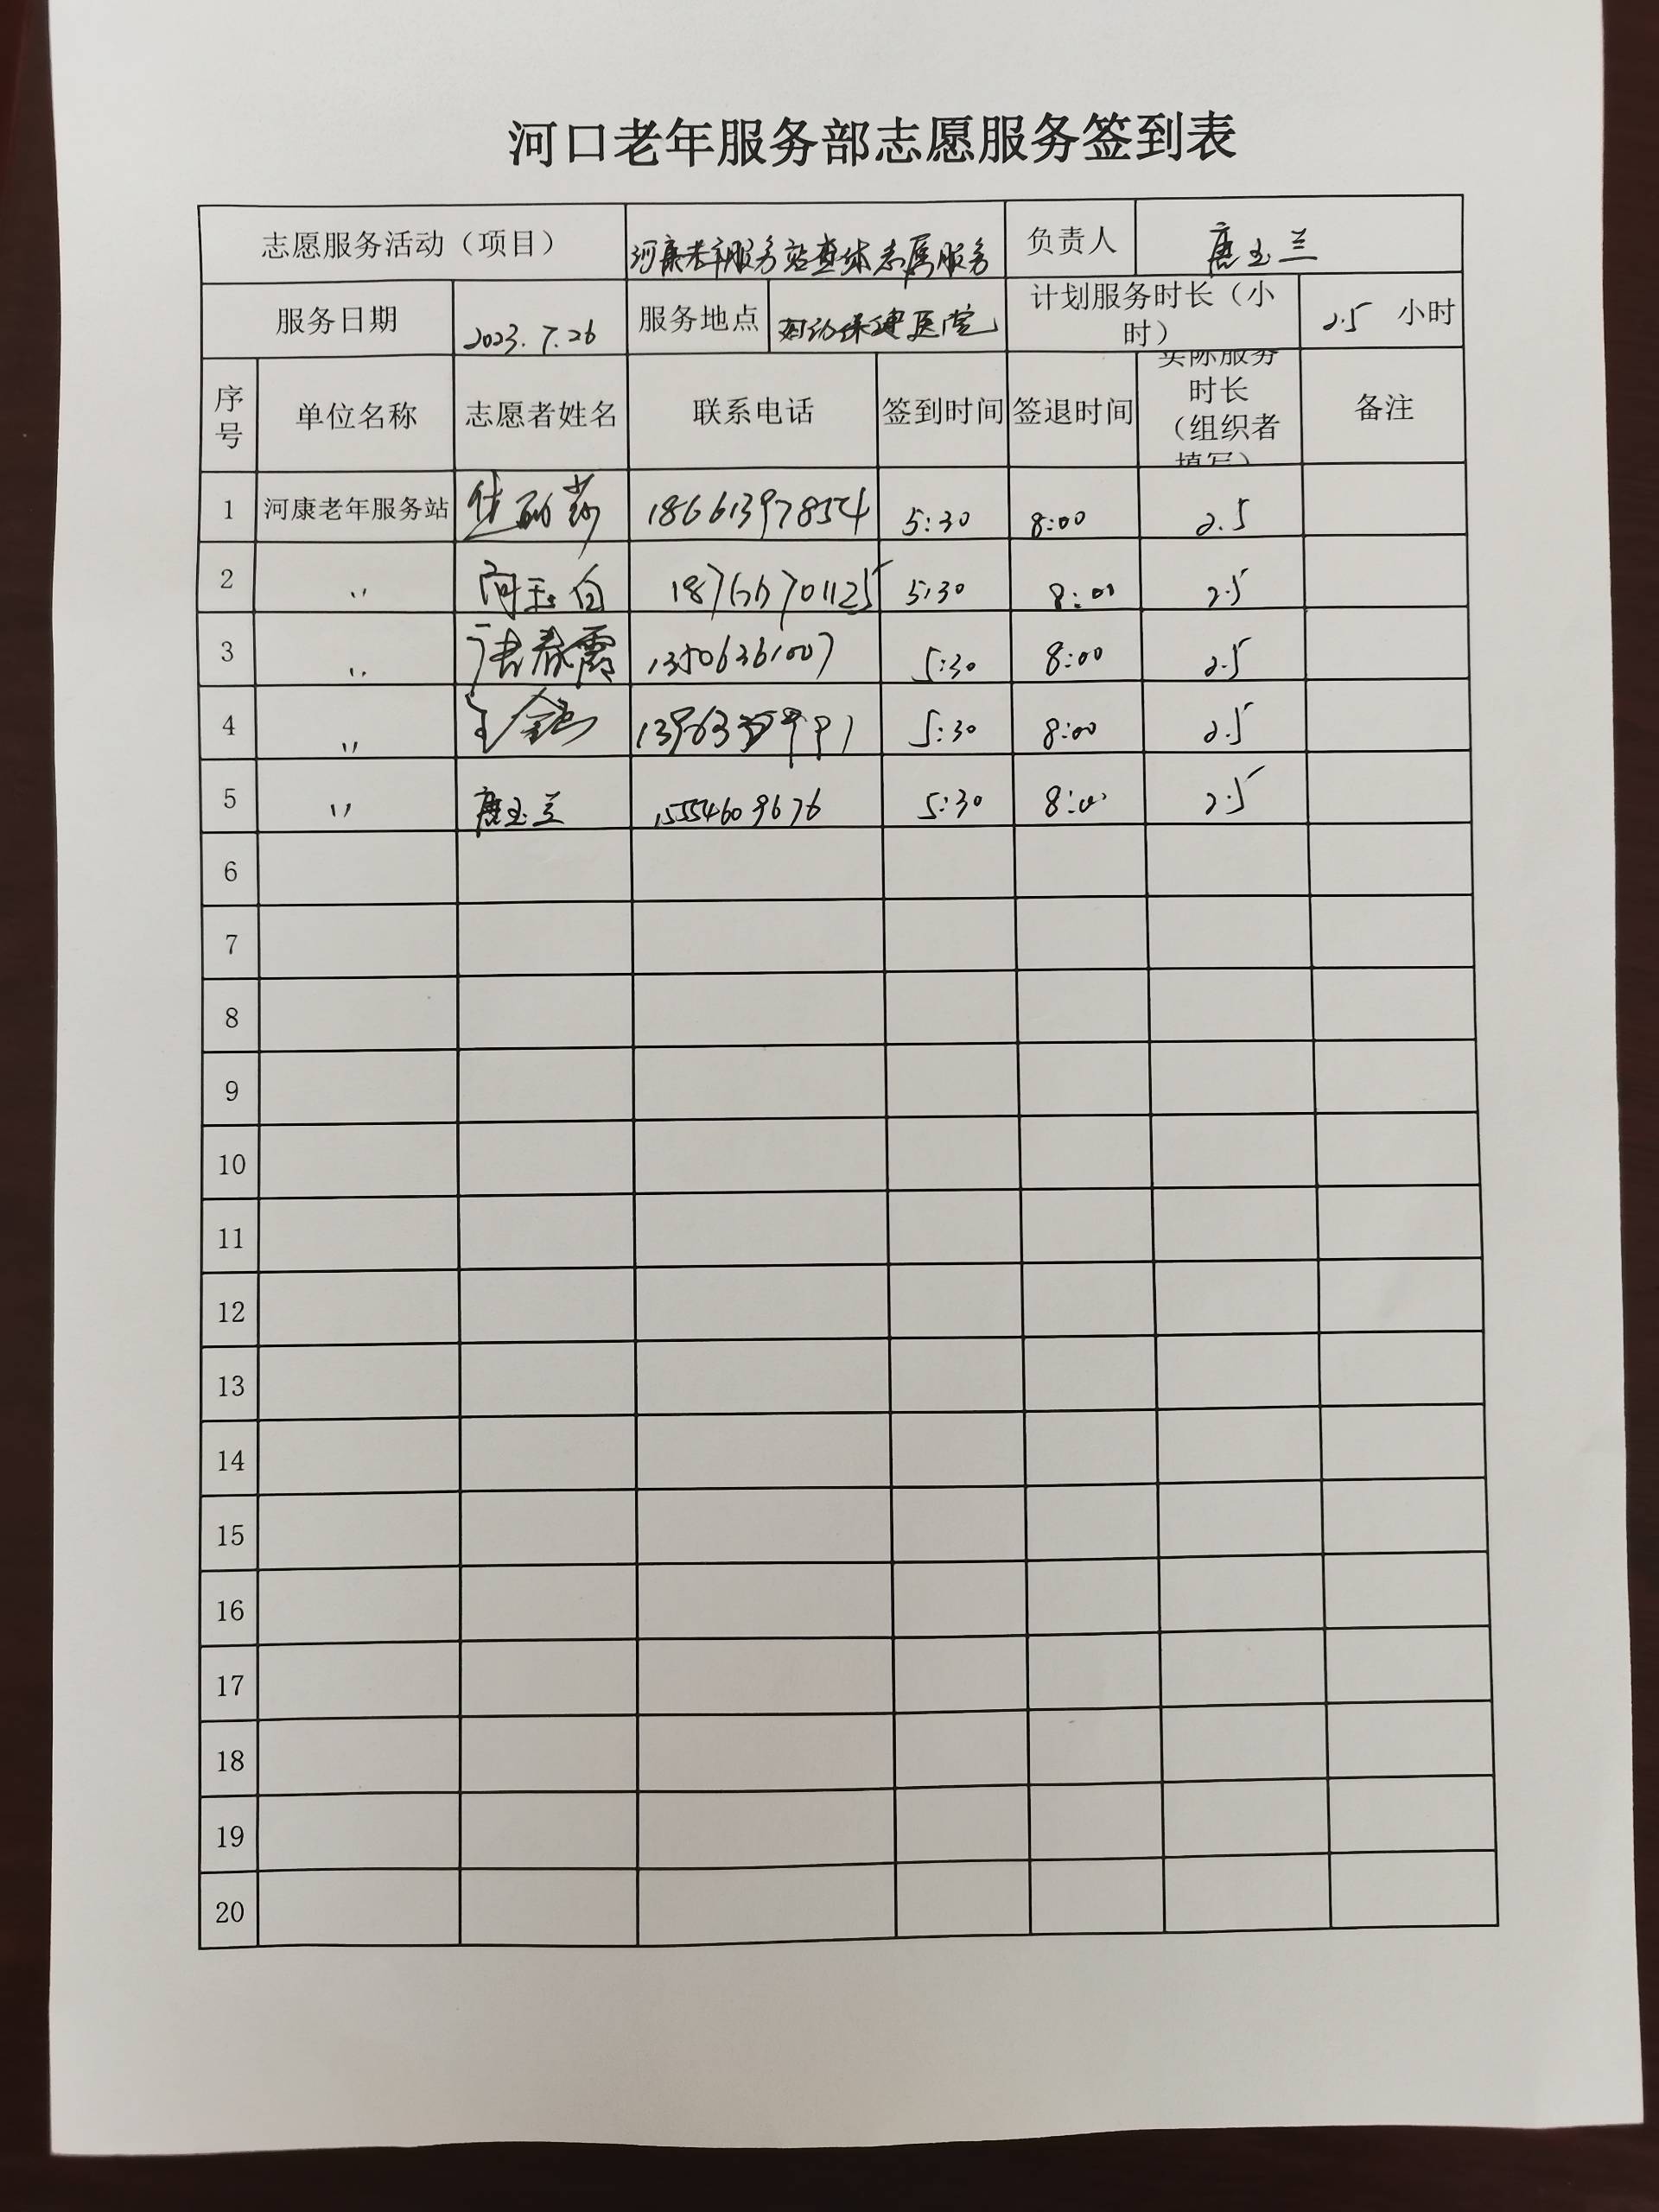 河口老年服务部志愿服务签到表
志愿服务活动（项目） 河康老年服务站查体志愿服务 负责人 唐玉兰
服务日期 2023.7.26 服务地点 妇幼保健医院 计划服务时长（小时） 2.5 小时
序号 单位名称 志愿者姓名 联系电话 签到时间 签退时间 实际服务时长（组织者填写） 备注
1 河康老年服务站 18661397854 5:30 8:00 2.5
2 〃 5:30 8:00 2.5
3 〃 13506361007 5:30 8:00 2.5
4 〃 5:30 8:00 2.5
5 〃 唐玉兰 15554609676 5:30 8:00 2.5
6
7
8
9
10
11
12
13
14
15
16
17
18
19
20